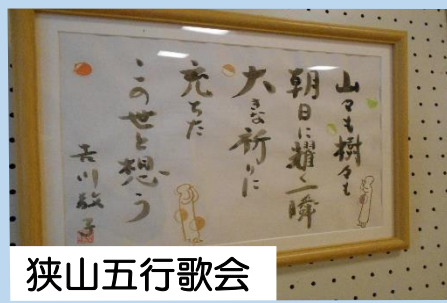 山々も樹々も
朝日に耀く一瞬
大きな祈りに
充ちた
この世と想う
狭山五行歌会